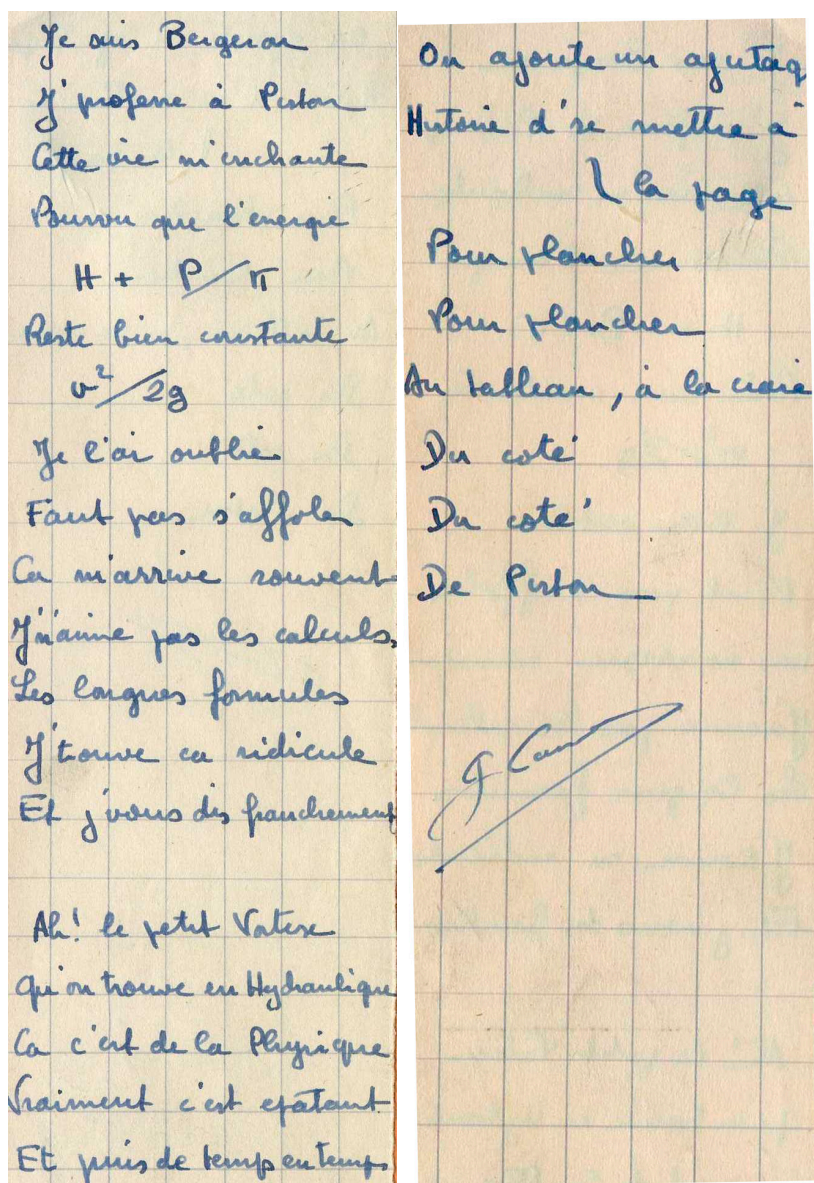 Je suis Bergeron
J' professe à Piston
Cette vie m'enchante
Pourvu que l'énergie
H + P/π
Reste bien constante
v²/2g
Je l'ai oublié
Faut pas s'affoler
Ca m'arrive souvent
J'n'aime pas les calculs,
Les longues formules
J'trouve ca ridicule
Et j'vous dis franchement
Ah! le petit Vortex
Qu'on trouve en Hydraulique
Ca c'est de la Physique
Vraiment c'est epatant
Et puis de temps en temps
On ajoute un ajutag
Histoire d'se mettre à
la page
Pour plancher
Pour plancher
Au tableau, à la craie
Du coté
Du coté
De Piston